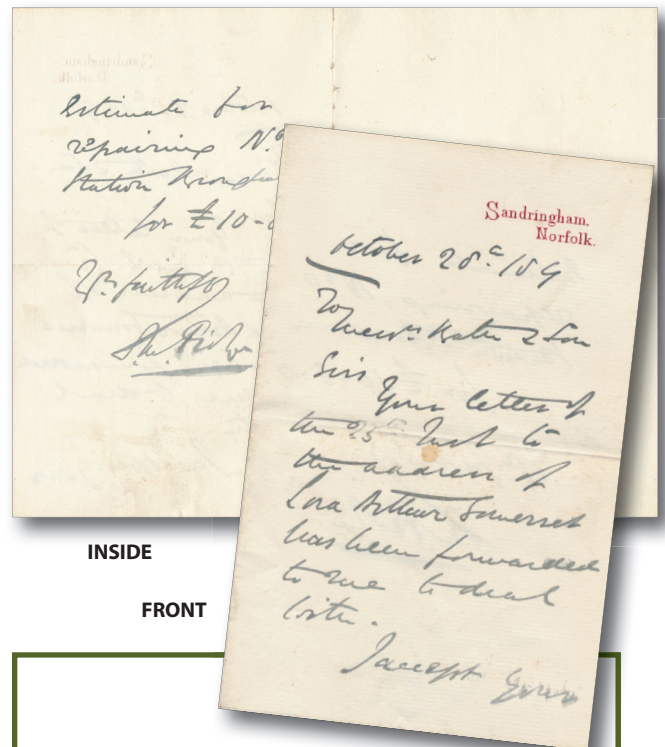 Estimate for
repairing No
Station Brougham
for £10-0
Yrs faithfully
INSIDE
FRONT
Sandringham.
Norfolk.
October 28th /89
To
Messrs & Son
Sirs
Your letter of
the 25th Inst to
the address of
Lord Arthur Somerset
has been forwarded
to me to deal
with.
I accept your